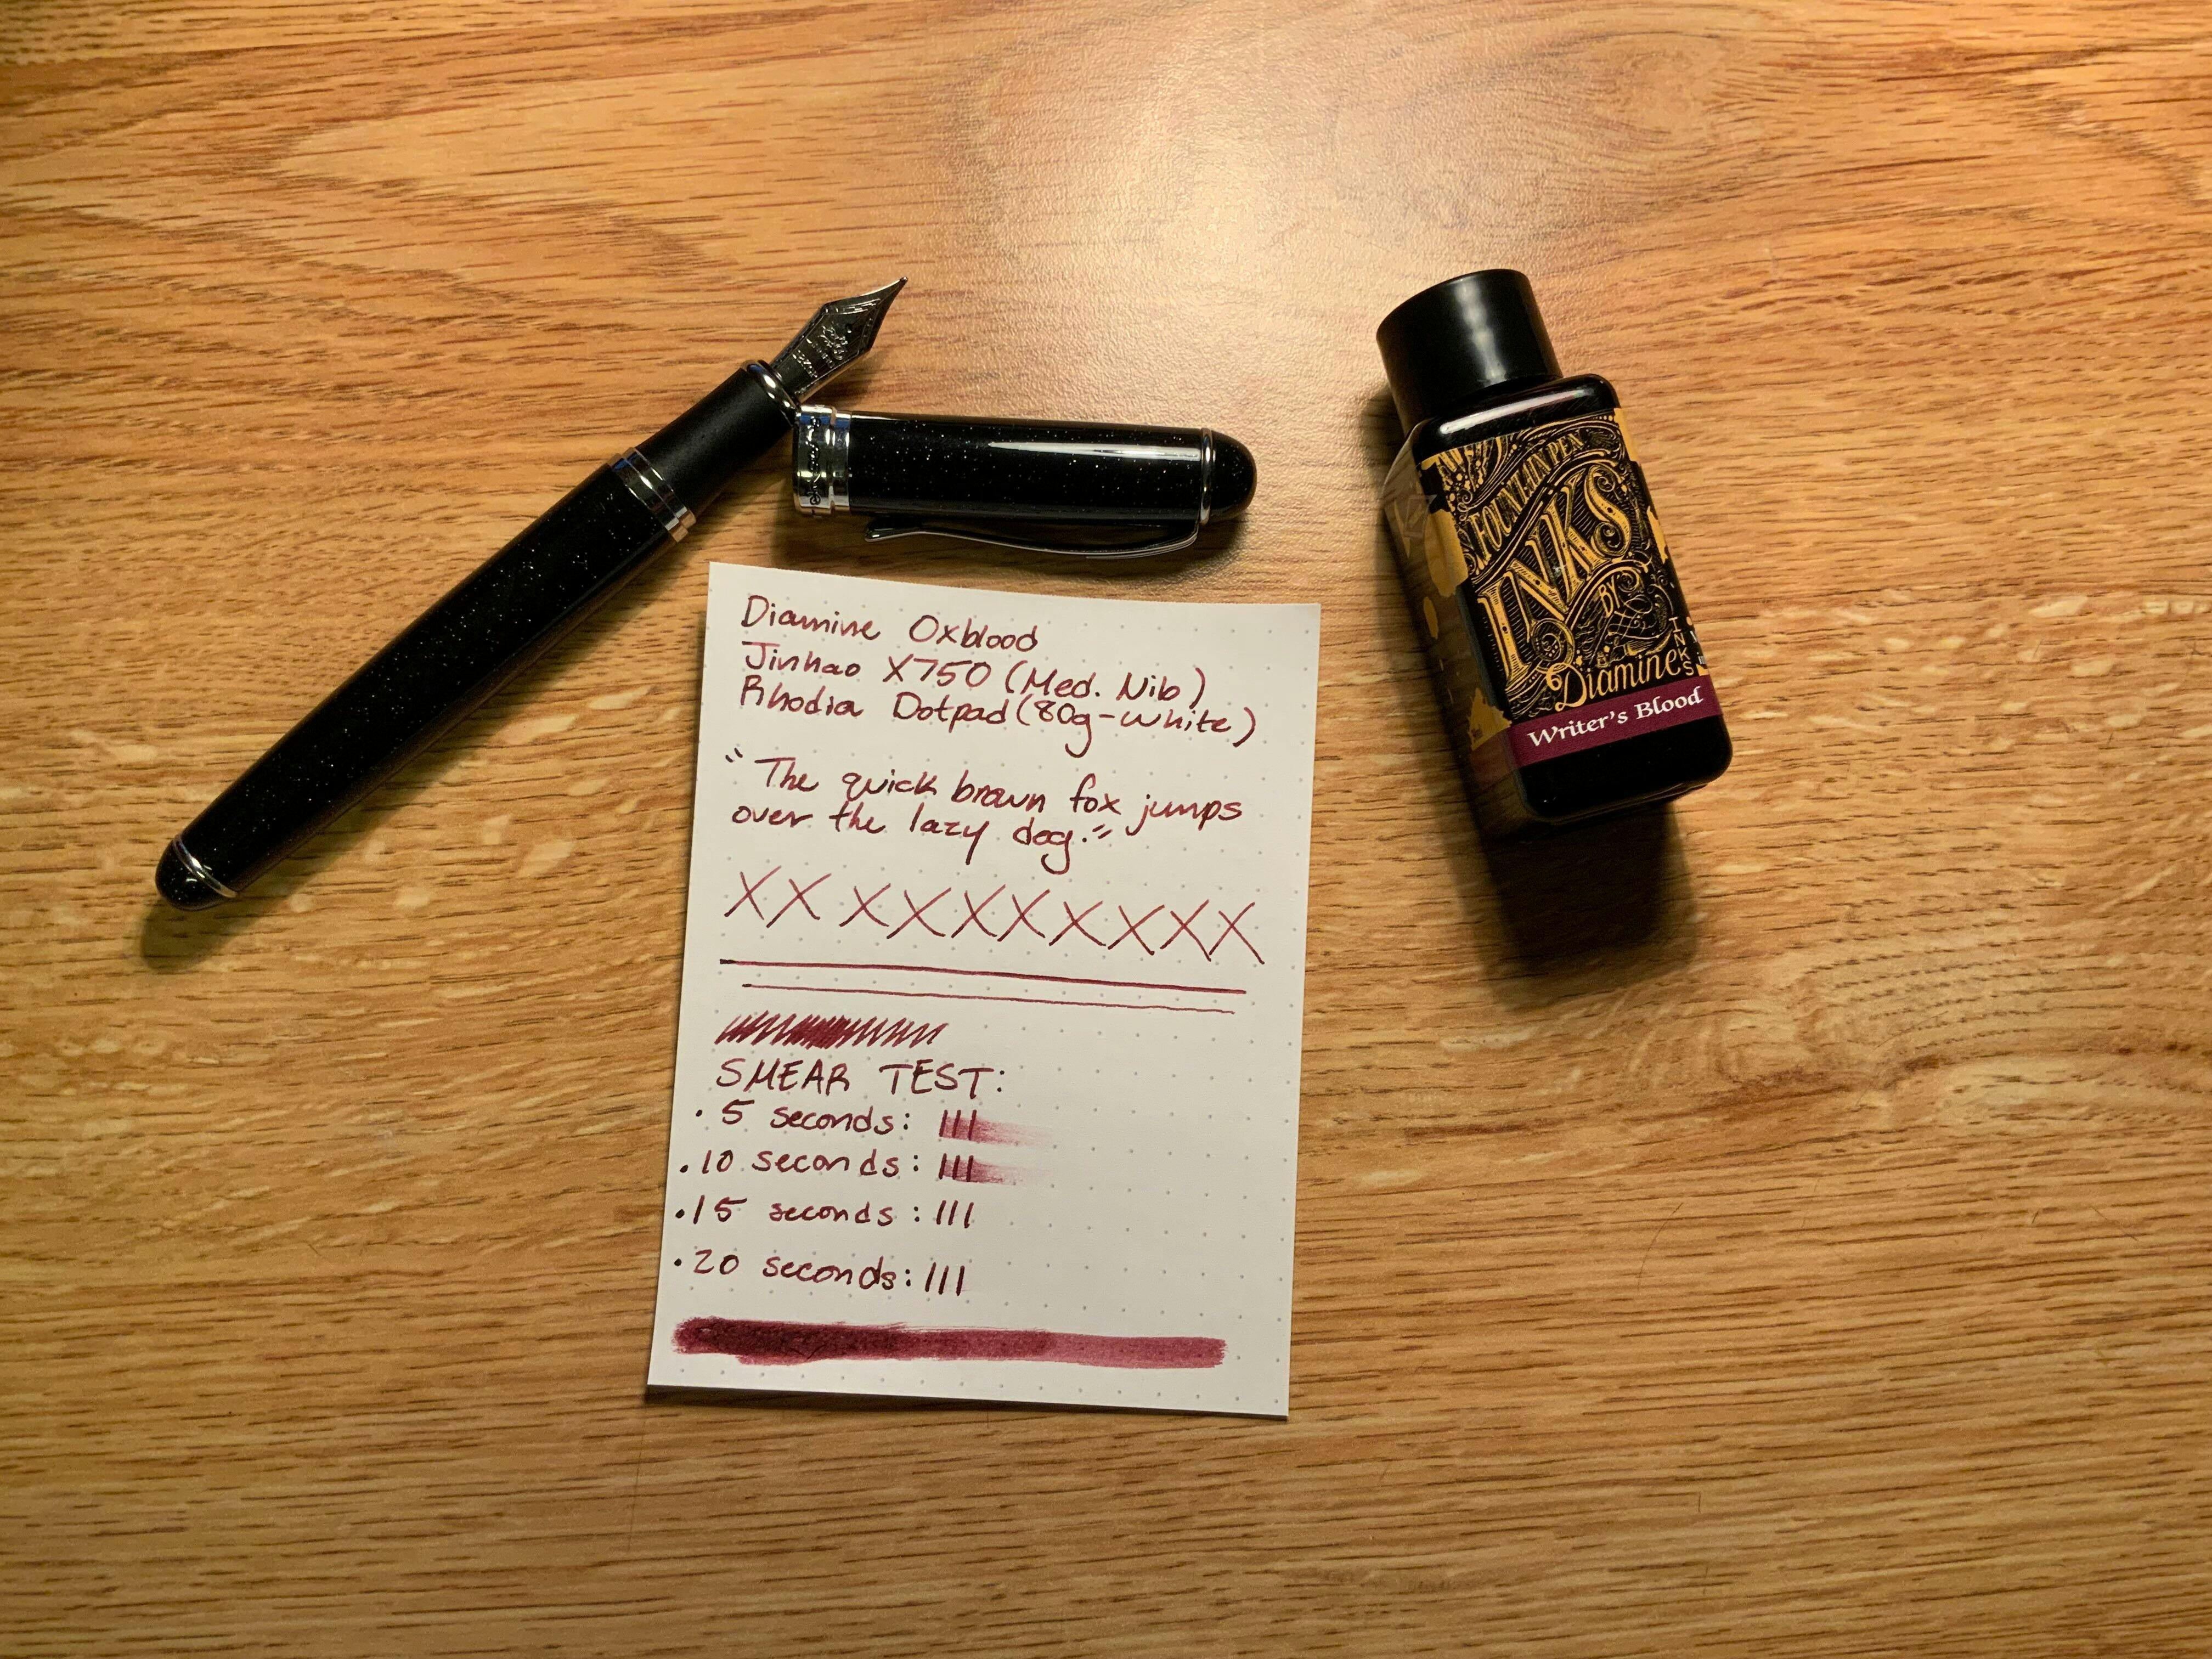 Diamine Oxblood
Jinhao X750 (Med. Nib)
Rhodia Dotpad (80g-white)
"The quick brown fox jumps
over the lazy dog."
XX XXXXXXXXX
SMEAR TEST:
· 5 seconds: III
· 10 seconds: III
· 15 seconds: III
· 20 seconds: III
FOUNTAIN PEN
INKS
BY
Diamine
INKS
Writer's Blood